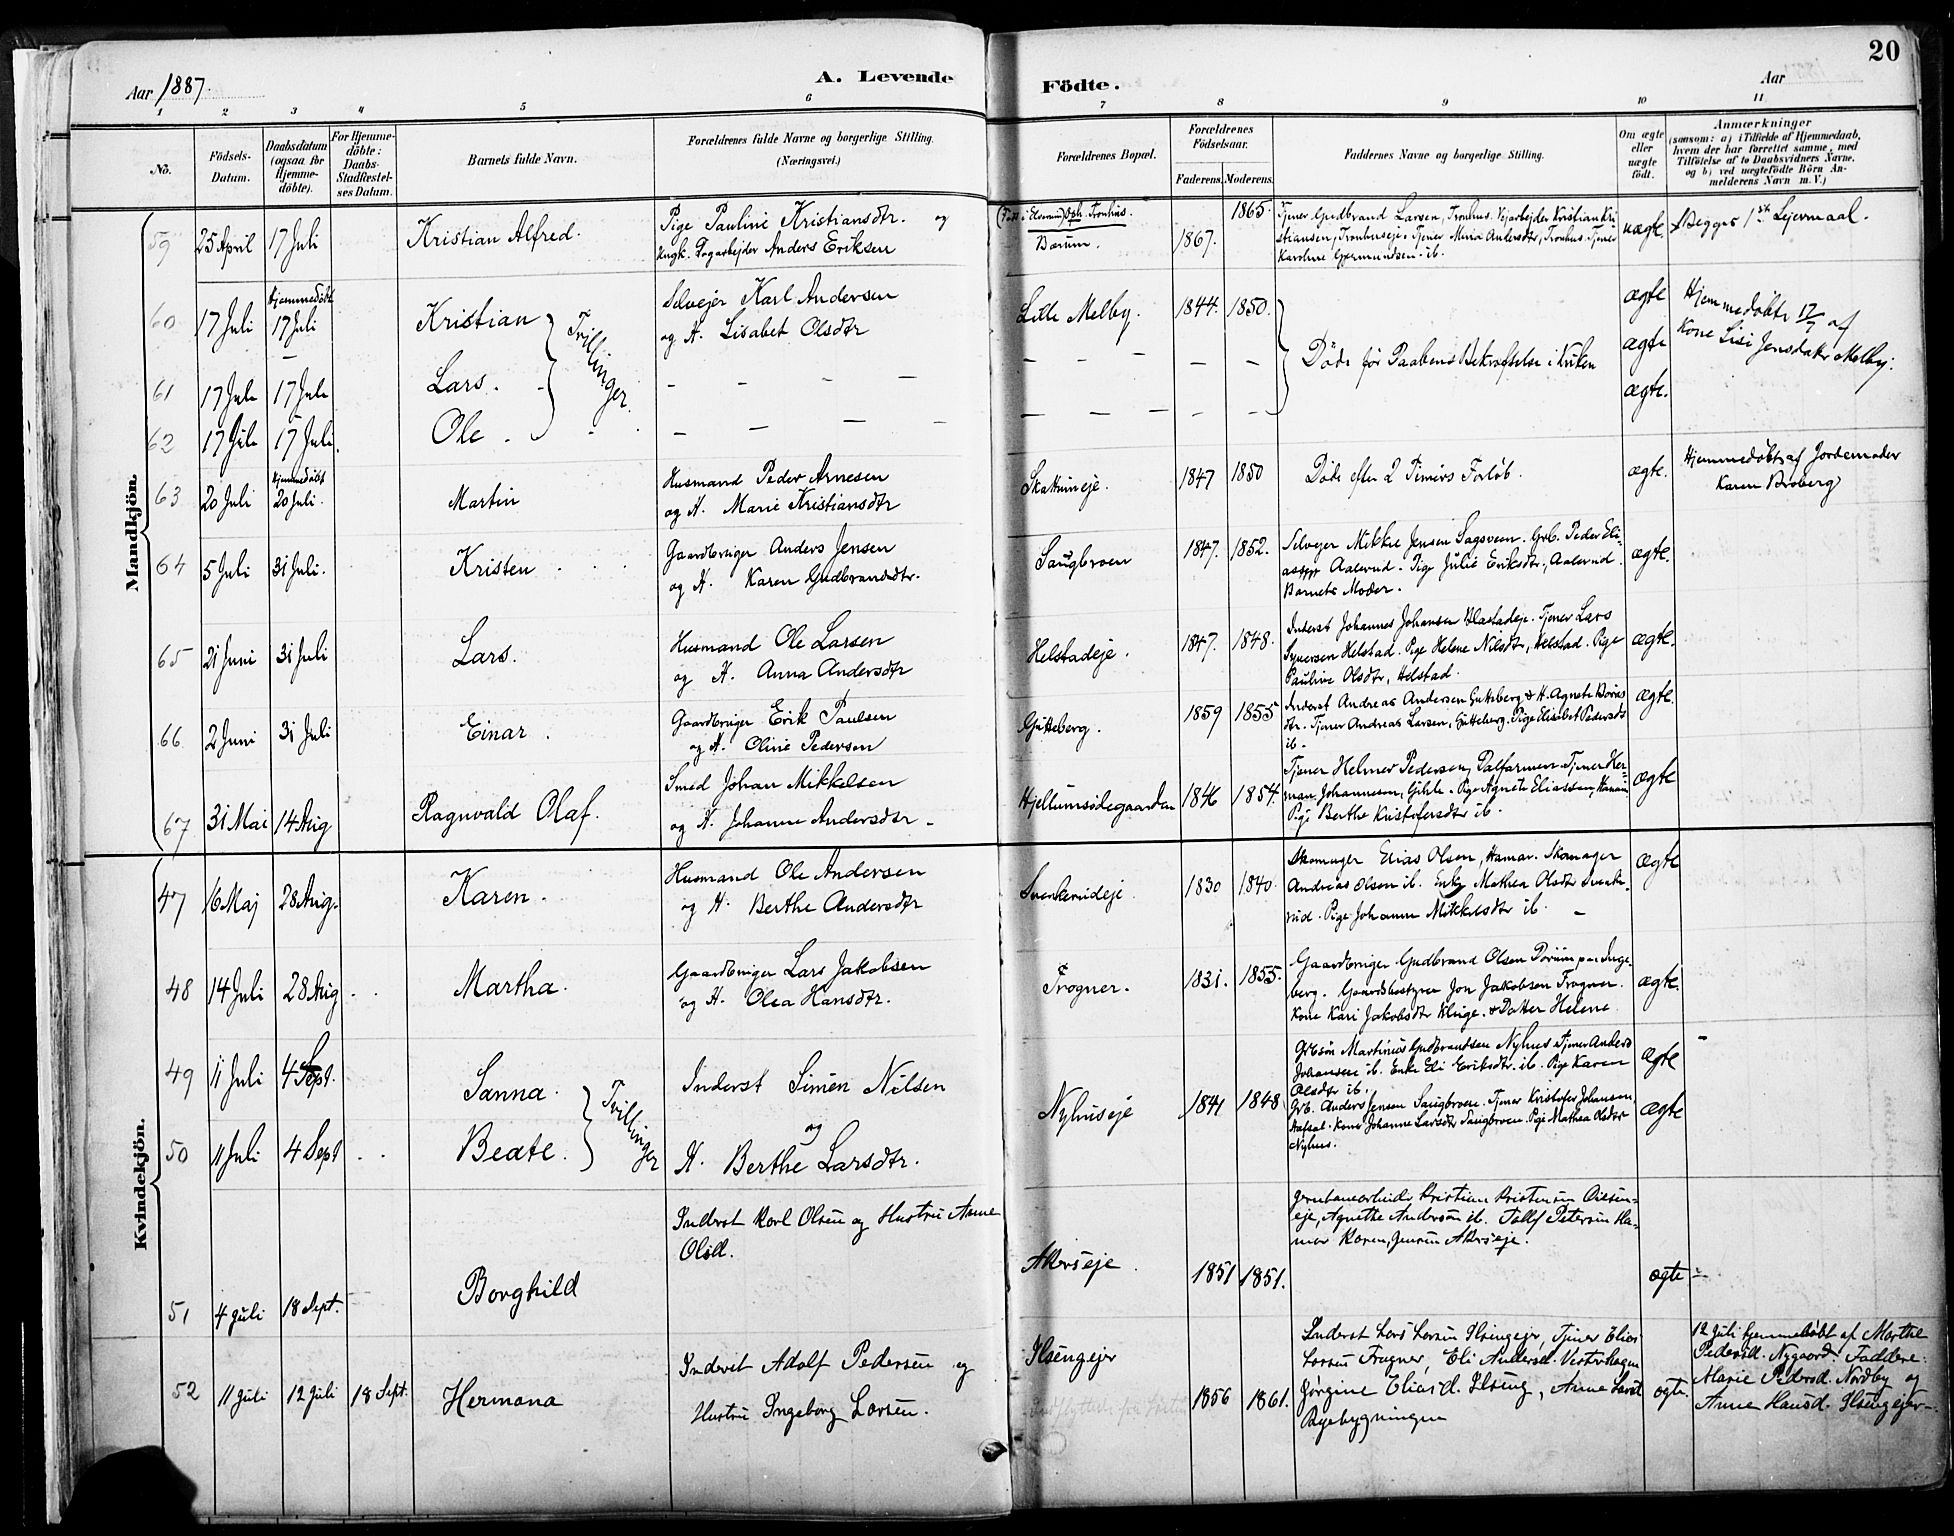 20
Aar 1887.
A. Levende
Födte.
Aar
1 2 3 4 5 6 7 8 9 10 11
No.
Födsels-
Datum.
Daabsdatum
(ogsaa for
Hjemme-
döbte).
For Hjemme-
döbte:
Daabs-
Stadfæstel-
ses Datum.
Barnets fulde Navn.
Forældrenes fulde Navne og borgerlige Stilling.
(Næringsvei.)
Forældrenes Bopæl.
Forældrenes
Födselsaar.
Faderens. Moderens.
Faddernes Navne og borgerlige Stilling.
Om ægte
eller
uægte
födt.
Anmærkninger
(saasom: a) i Tilfælde af Hjemmedaab,
hvem der har forrettet samme, med
Tilföielse af to Daabsvidners Navne.
og b) ved uægtefödte Börn An-
melderens Navn m. V.)
Mandkjön.
59 25 April 17 Juli Kristian Alfred.
Pige Pauline Kristiansdtr. og
Ungk. Dagarbejder Anders Eriksen
Tronhus.
Bærum.
1867. 1865.
Tjener Gudbrand Larsen, Tronhus. Vejarbejder Kristian Kri
stiansen, Tronhuseje. Tjener Maria Andersdtr, Tronhus. Tjener
Karoline Gjermundsen ib.
uægte. Begges 1ste Lejermaal.
60 17 Juli Hjemmedöbt 17 Juli Kristian
Selvejer Karl Andersen
og H. Lisabet Olsdtr
Lille Melby. 1844. 1850.
ægte
Hjemmedöbte 17/7 af
Kone Lisi Jensdatr Melby.
61 17 Juli 17 Juli Lars. Tvillinger
— — — —
Döde för Daabens Bekræftelse i Kirken
ægte
62 17 Juli 17 Juli Ole.
— — — —
ægte.
63 20 Juli Hjemmedöbt 20 Juli. Martin
Husmand Peder Arnesen
og H. Marie Kristiansdtr
Skattumeje. 1847 1850
Döde efter 2 Timers Forlöb.
ægte.
Hjemmedöbt af Jordemoder
Karen Broberg
64 5 Juli 31 Juli. Kristen
Gaardbruger Anders Jensen
og H. Karen Gudbrandsdtr.
Saugbroen 1847. 1852.
Selvejer Mikkel Jensen Sagsveen. Grb. Peder Eli-
assen Aalerud. Pige Julie Eriksdtr, Aalerud.
Barnets Moder.
ægte.
65 21 Juni 31 Juli Lars.
Husmand Ole Larsen
og H. Anna Andersdtr
Helstadeje. 1847. 1848.
Inderst Johannes Johansen Blæstadeje. Tjener Lars
Syversen Helstad. Pige Helene Nilsdtr, Helstad. Pige
Pauline Olsdtr, Helstad.
ægte.
66 2 Juni 31 Juli Einar.
Gaardbruger Erik Paulsen
og H. Oline Pedersen
Gütteberg. 1859 1855
Inderst Andreas Andersen Gutteberg & H. Agnete
dtr. Tjener Andreas Larsen, Gütteberg. Pige Elisabet Pedersdt
ib.
ægte.
67 31 Mai 14 Aug. Ragnvald Olaf.
Smed Johan Mikkelsen
og H. Johanne Andersdtr.
Hjellumsödegaarden 1846 1854.
Tjener Helmer Pedersen, Dalfarmen. Tjener Her-
man Johannesen, Gihle. Pige Agnete Eliassen, Hamar.
Pige Berthe Kristofersdtr ib.
ægte
Kvindekjön.
47 16 Maj 28 Aug. Karen.
Husmand Ole Andersen
og H. Berthe Andersdtr
Svenkerudeje. 1830 1840.
Skomager Elias Olsen, Hamar. Skomager
Andreas Olsen ib. Enke Mathea Olsdtr Svenke-
rud. Pige Johanne Mikkelsdtr ib.
ægte
48 14 Juli 28 Aug Martha.
Gaardbruger Lars Jakobsen
og H. Olea Hansdtr.
Frogner. 1831. 1855.
Gaardbruger Gudbrand Olsen Dörum paa Inge-
berg. Gaardsbestyrer Jon Jakobsen Frogner.
Kone Kari Jakobsdtr Klinge. & Datter Helene
ægte.
49 11 Juli 4 Sept. Sanna.
Inderst Simen Nilsen
og
H. Berthe Larsdtr.
Nyhuseje 1841 1848
Grbsön Martinius Gudbrandsen Nyhus Tjener Anders
Johansen ib. Enke Eli Eriksdtr. ib. Pige Karen
Olsdtr ib.
ægte
50 11 Juli 4 Sept Beate. Tvillinger
Grb. Anders Jensen Saugbroen. Tjener Kristofer Johansen,
Kone Johanne Larsdtr Saugbroen. Pige Mathea Olsdtr
Nyhus.
ægte
51 4 Juli 18 Sept. Borghild
Inderst Karl Olsen og Hustru Anne
Olsd.
Akerseje. 1851 1851.
Jernbanearbeider Kristian Kristensen
eje, Agnethe Andersen ib. Tollef Petersen Ha-
mar Karen Jensen Akerseje.
ægte
52 11 Juli 12 Juli 18 Sept. Hermana
Inderst Adolf Pedersen og
Hustru Ingeborg Larsen.
Ilsengejer
1856 1861.
Inderst Lars Larsen Ilsengejer, Tjener Elias
Larsen Frogner, Eli Andersd. Vesterhagen
Jørgine Eliasd. Ilseng, Anne Larsd
Byebygningen
ægte.
12 Juli hjemmedöbt af Marthe
Pedersd. Nygaard. Faddere:
Marie Pedersd. Nordby og
Anne Hansd. Ilsengejer.